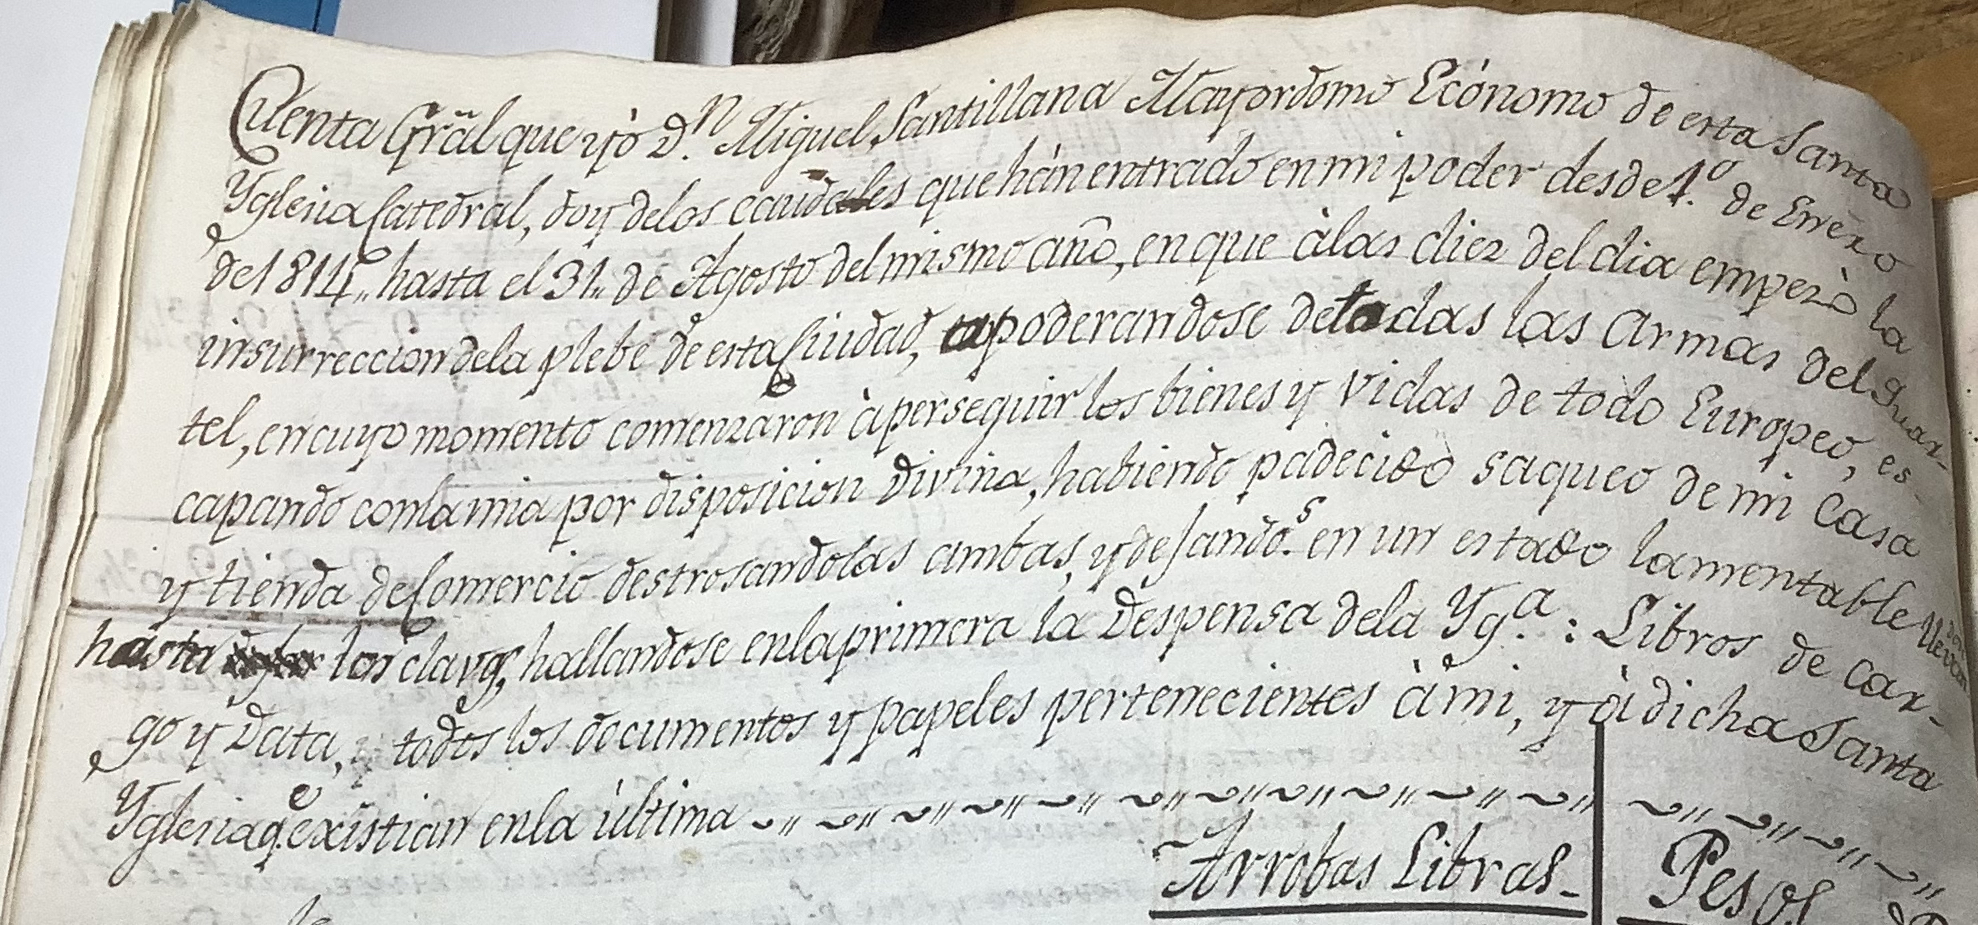 Cuenta Grãl que yò D.n Miguel Santillana Mayordomo Ecónomo de esta Santa
Yglesia Catedral, doy delos caudales que hán entrado en mi poder desde 1.o de Enero
de 1814,, hasta el 31,, de Agosto del mismo año, en que à las diez del dia empezò la
insurreccion dela plebe de esta Ciudad, apoderandose de todas las Armas del Quar-
tel, en cuyo momento comenzaron à perseguir los bienes y vidas de todo Europeo, es-
capando con la mia por disposicion Divina, habiendo padecido saqueo de mi Casa
y tienda de Comercio destrosandolas ambas, y dejandos en un estado lamentable llevandose
hasta los clavos, hallandose en la primera la Despensa dela Yg.a: Libros de Car-
go y Data, todos los documentos y papeles pertenecientes à mi, y à dicha Santa
Yglesia q.e existian en la última
Arrobas Libras - Pesos